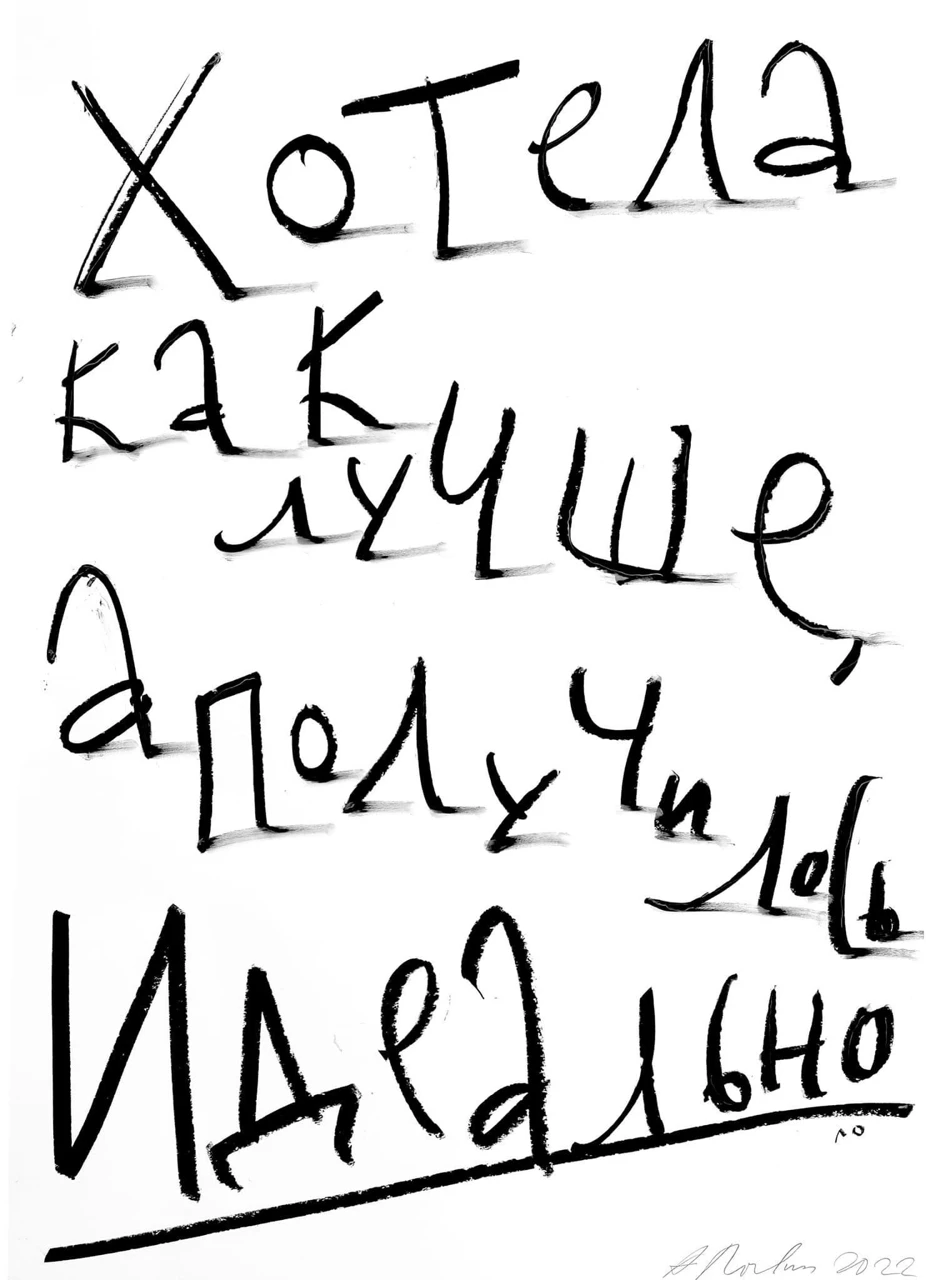 Хотела
как
лучше,
а получилось
идеально
2022